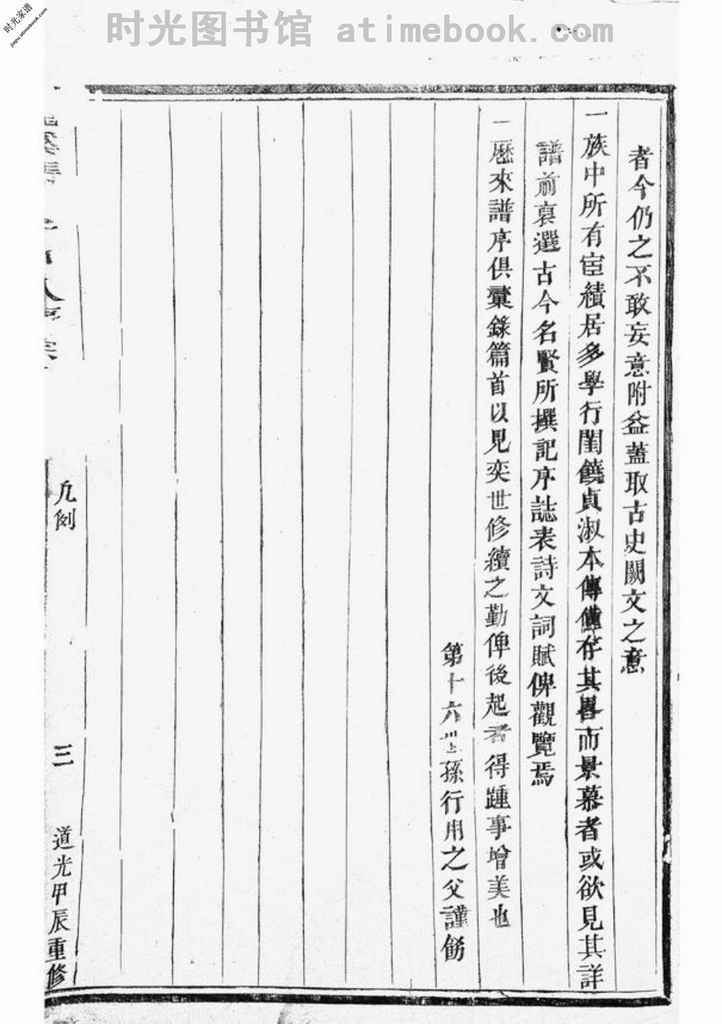 时光家谱
jiapu.atimebook.com
时光图书馆 atimebook.com
者今仍之不敢妄意附益蓋取古史闕文之意
一族中所有宦績居多學行閨饒貞淑本傳僅存其畧而景慕者或欲見其詳
譜前裒選古今名賢所撰記序誌表詩文詞賦俾觀覽焉
一歷來譜序俱彚錄篇首以見奕世修續之勤俾後起者得踵事增美也
第十六世孫行用之父謹
凡例
三
道光甲辰重修